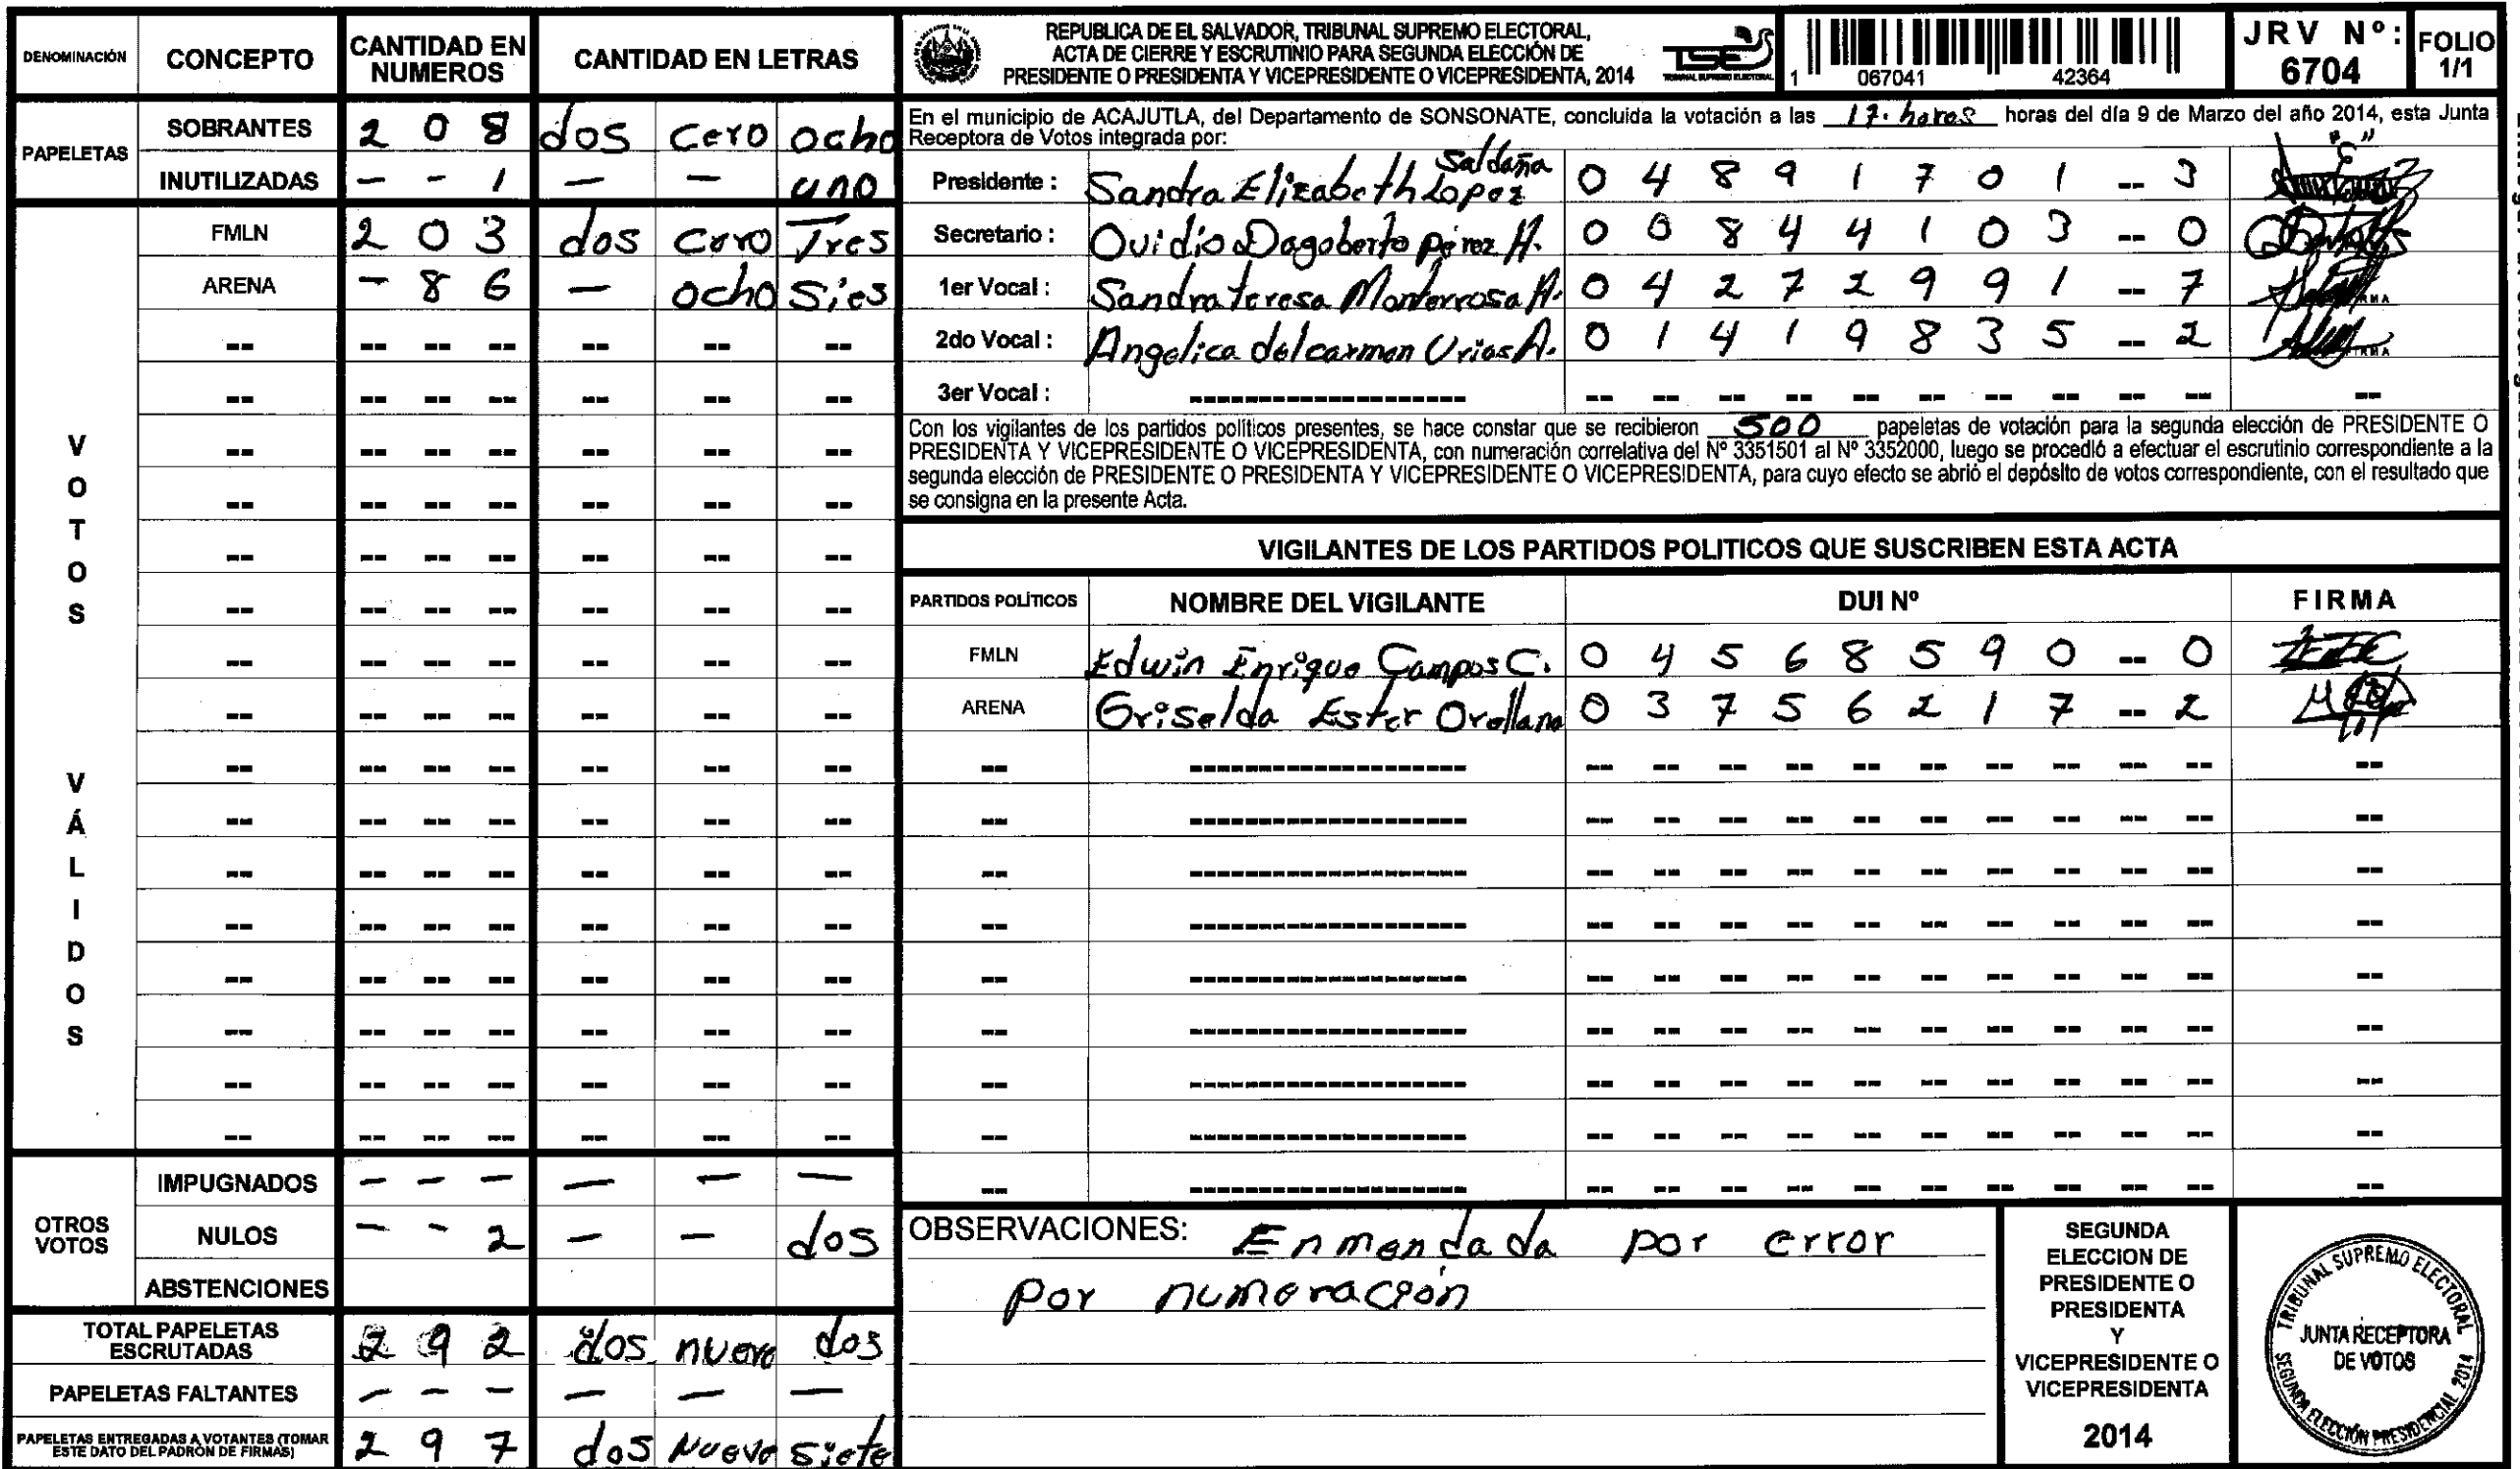 DENOMINACIÓN CONCEPTO CANTIDAD EN NUMEROS CANTIDAD EN LETRAS
PAPELETAS
SOBRANTES 2 0 8 dos cero ocho
INUTILIZADAS - - 1 - - uno
VOTOS VÁLIDOS
FMLN 2 0 3 dos cero Tres
ARENA - 8 6 - ocho Sies
OTROS VOTOS
IMPUGNADOS - - - - - -
NULOS - - 2 - - dos
ABSTENCIONES
TOTAL PAPELETAS ESCRUTADAS 2 9 2 dos nueve dos
PAPELETAS FALTANTES - - - - - -
PAPELETAS ENTREGADAS A VOTANTES (TOMAR ESTE DATO DEL PADRÓN DE FIRMAS) 2 9 7 dos Nueve siete
REPUBLICA DE EL SALVADOR, TRIBUNAL SUPREMO ELECTORAL,
ACTA DE CIERRE Y ESCRUTINIO PARA SEGUNDA ELECCIÓN DE
PRESIDENTE O PRESIDENTA Y VICEPRESIDENTE O VICEPRESIDENTA, 2014
TSE
TRIBUNAL SUPREMO ELECTORAL
1 067041 42364
JRV Nº: 6704
FOLIO 1/1
En el municipio de ACAJUTLA, del Departamento de SONSONATE, concluida la votación a las 17. horas horas del día 9 de Marzo del año 2014, esta Junta
Receptora de Votos integrada por:
Presidente : Sandra Elizabeth Lopez Saldaña 0 4 8 9 1 7 0 1 -- 3
Secretario : Ovidio Dagoberto Pérez H. 0 0 8 4 4 1 0 3 -- 0
1er Vocal : Sandra Teresa Monterrosa H. 0 4 2 7 2 9 9 1 -- 7
2do Vocal : Angelica del carmen Urias A. 0 1 4 1 9 8 3 5 -- 2
3er Vocal :
Con los vigilantes de los partidos políticos presentes, se hace constar que se recibieron 500 papeletas de votación para la segunda elección de PRESIDENTE O
PRESIDENTA Y VICEPRESIDENTE O VICEPRESIDENTA, con numeración correlativa del Nº 3351501 al Nº 3352000, luego se procedió a efectuar el escrutinio correspondiente a la
segunda elección de PRESIDENTE O PRESIDENTA Y VICEPRESIDENTE O VICEPRESIDENTA, para cuyo efecto se abrió el depósito de votos correspondiente, con el resultado que
se consigna en la presente Acta.
VIGILANTES DE LOS PARTIDOS POLITICOS QUE SUSCRIBEN ESTA ACTA
PARTIDOS POLÍTICOS NOMBRE DEL VIGILANTE DUI Nº FIRMA
FMLN Edwin Enrique Campos C. 0 4 5 6 8 5 9 0 -- 0
ARENA Griselda Ester Orellana 0 3 7 5 6 2 1 7 -- 2
OBSERVACIONES: Enmendada por error
por numeración
SEGUNDA
ELECCION DE
PRESIDENTE O
PRESIDENTA
Y
VICEPRESIDENTE O
VICEPRESIDENTA
2014
TRIBUNAL SUPREMO ELECTORAL
JUNTA RECEPTORA
DE VOTOS
SEGUNDA ELECCIÓN PRESIDENCIAL 2014